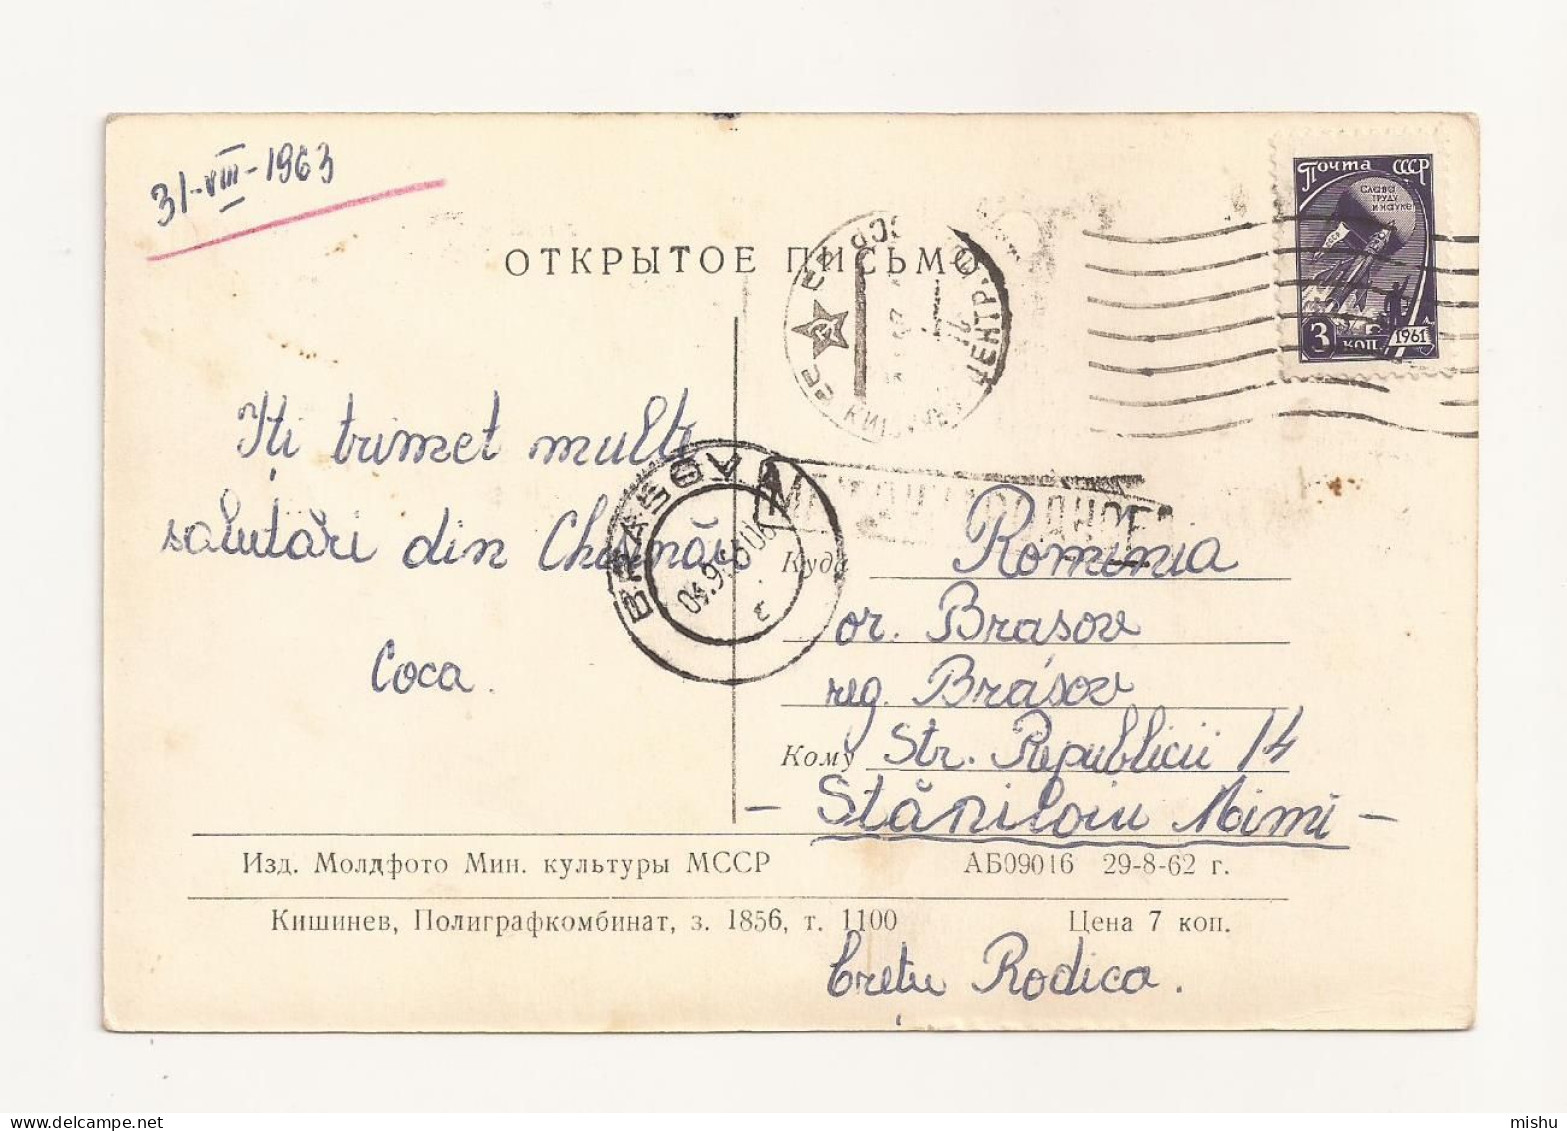 31-VIII-1963
Почта СССР
СЛАВА
ТРУДУ
И НАУКЕ
3 коп. 1961
ОТКРЫТОЕ ПИСЬМО
МЕЖДУНАРОДНОЕ
BRASOV
Iți trimet multe
salutări din Chișinău
Coca.
Куда România
or. Brasov
reg. Brásov
Кому Str. Republicii 14
- Stăniloiu Mimi -
Изд. Молдфото Мин. культуры МССР АБ09016 29-8-62 г.
Кишинев, Полиграфкомбинат, з. 1856, т. 1100 Цена 7 коп.
Cretu Rodica.
mishu